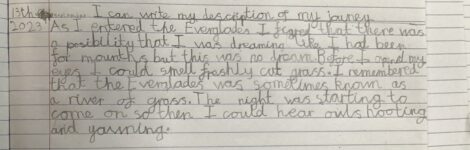 13th I can write my description of my jouney
2023 As I entered the Everglades I figred that there was
a posibllity that I was dreaming like I had been
for mounths but this was no dream. Before I opend my
eyes I could smell freshly cut grass. I remembered
that the Everglades was sometimes known as
a river of grass. The night was starting to
come on so then I could hear owls hooting
and yawning.